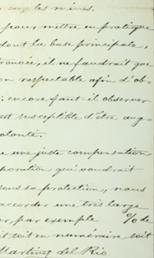 pour mettre en pratique
dont la base principale,
il ne faudrait que
respectable afin d'ob-
encore faut il observer
est susceptible d'être aug-
une juste compensation
qui voudrait
sa protection, nous
accorder une très large
par exemple % de
soit en numéraire soit
Martinez del Rio